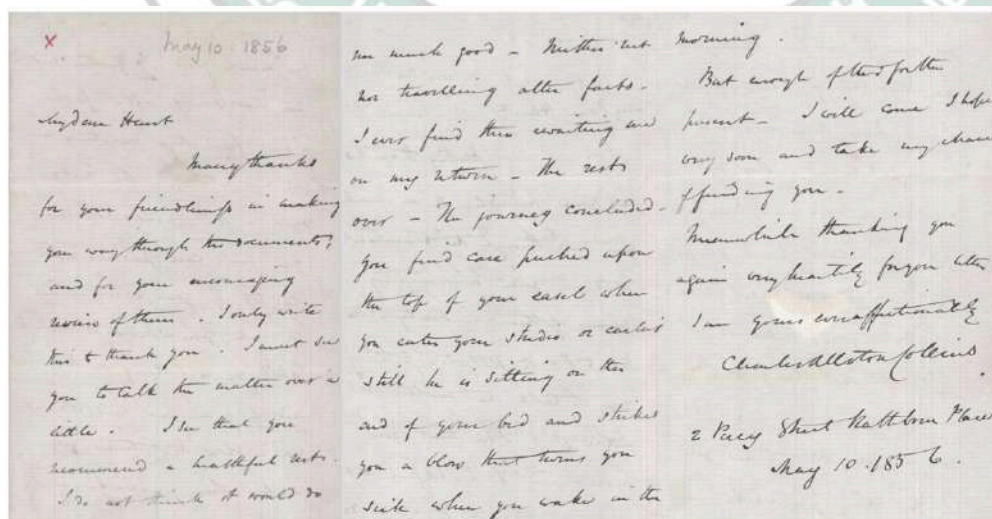 x
May 10. 1856
My dear Hunt
Many thanks
for your friendliness in making
your way through the documents,
and for your encouraging
review of them. I only write
this to thank you. I must see
you to talk the matter over a
little. I see that you
recommend a healthful rest.
I do not think it would do
me much good - Neither rest
nor travelling alter facts.
I ever find them awaiting me
on my return - The rest's
over - The journey concluded -
you find care perched upon
the top of your easel when
you enter your studio or earlier
still he is sitting on the
end of your bed and strikes
you a blow that turns you
sick when you wake in the
morning.
But enough of this for the
present - I will come I hope
very soon and take my chance
of finding you.
Meanwhile thanking you
again very heartily for your letter
I am yours ever affectionately
Charles Allston Collins
2 Percy Street Rathbone Place
May 10. 1856.